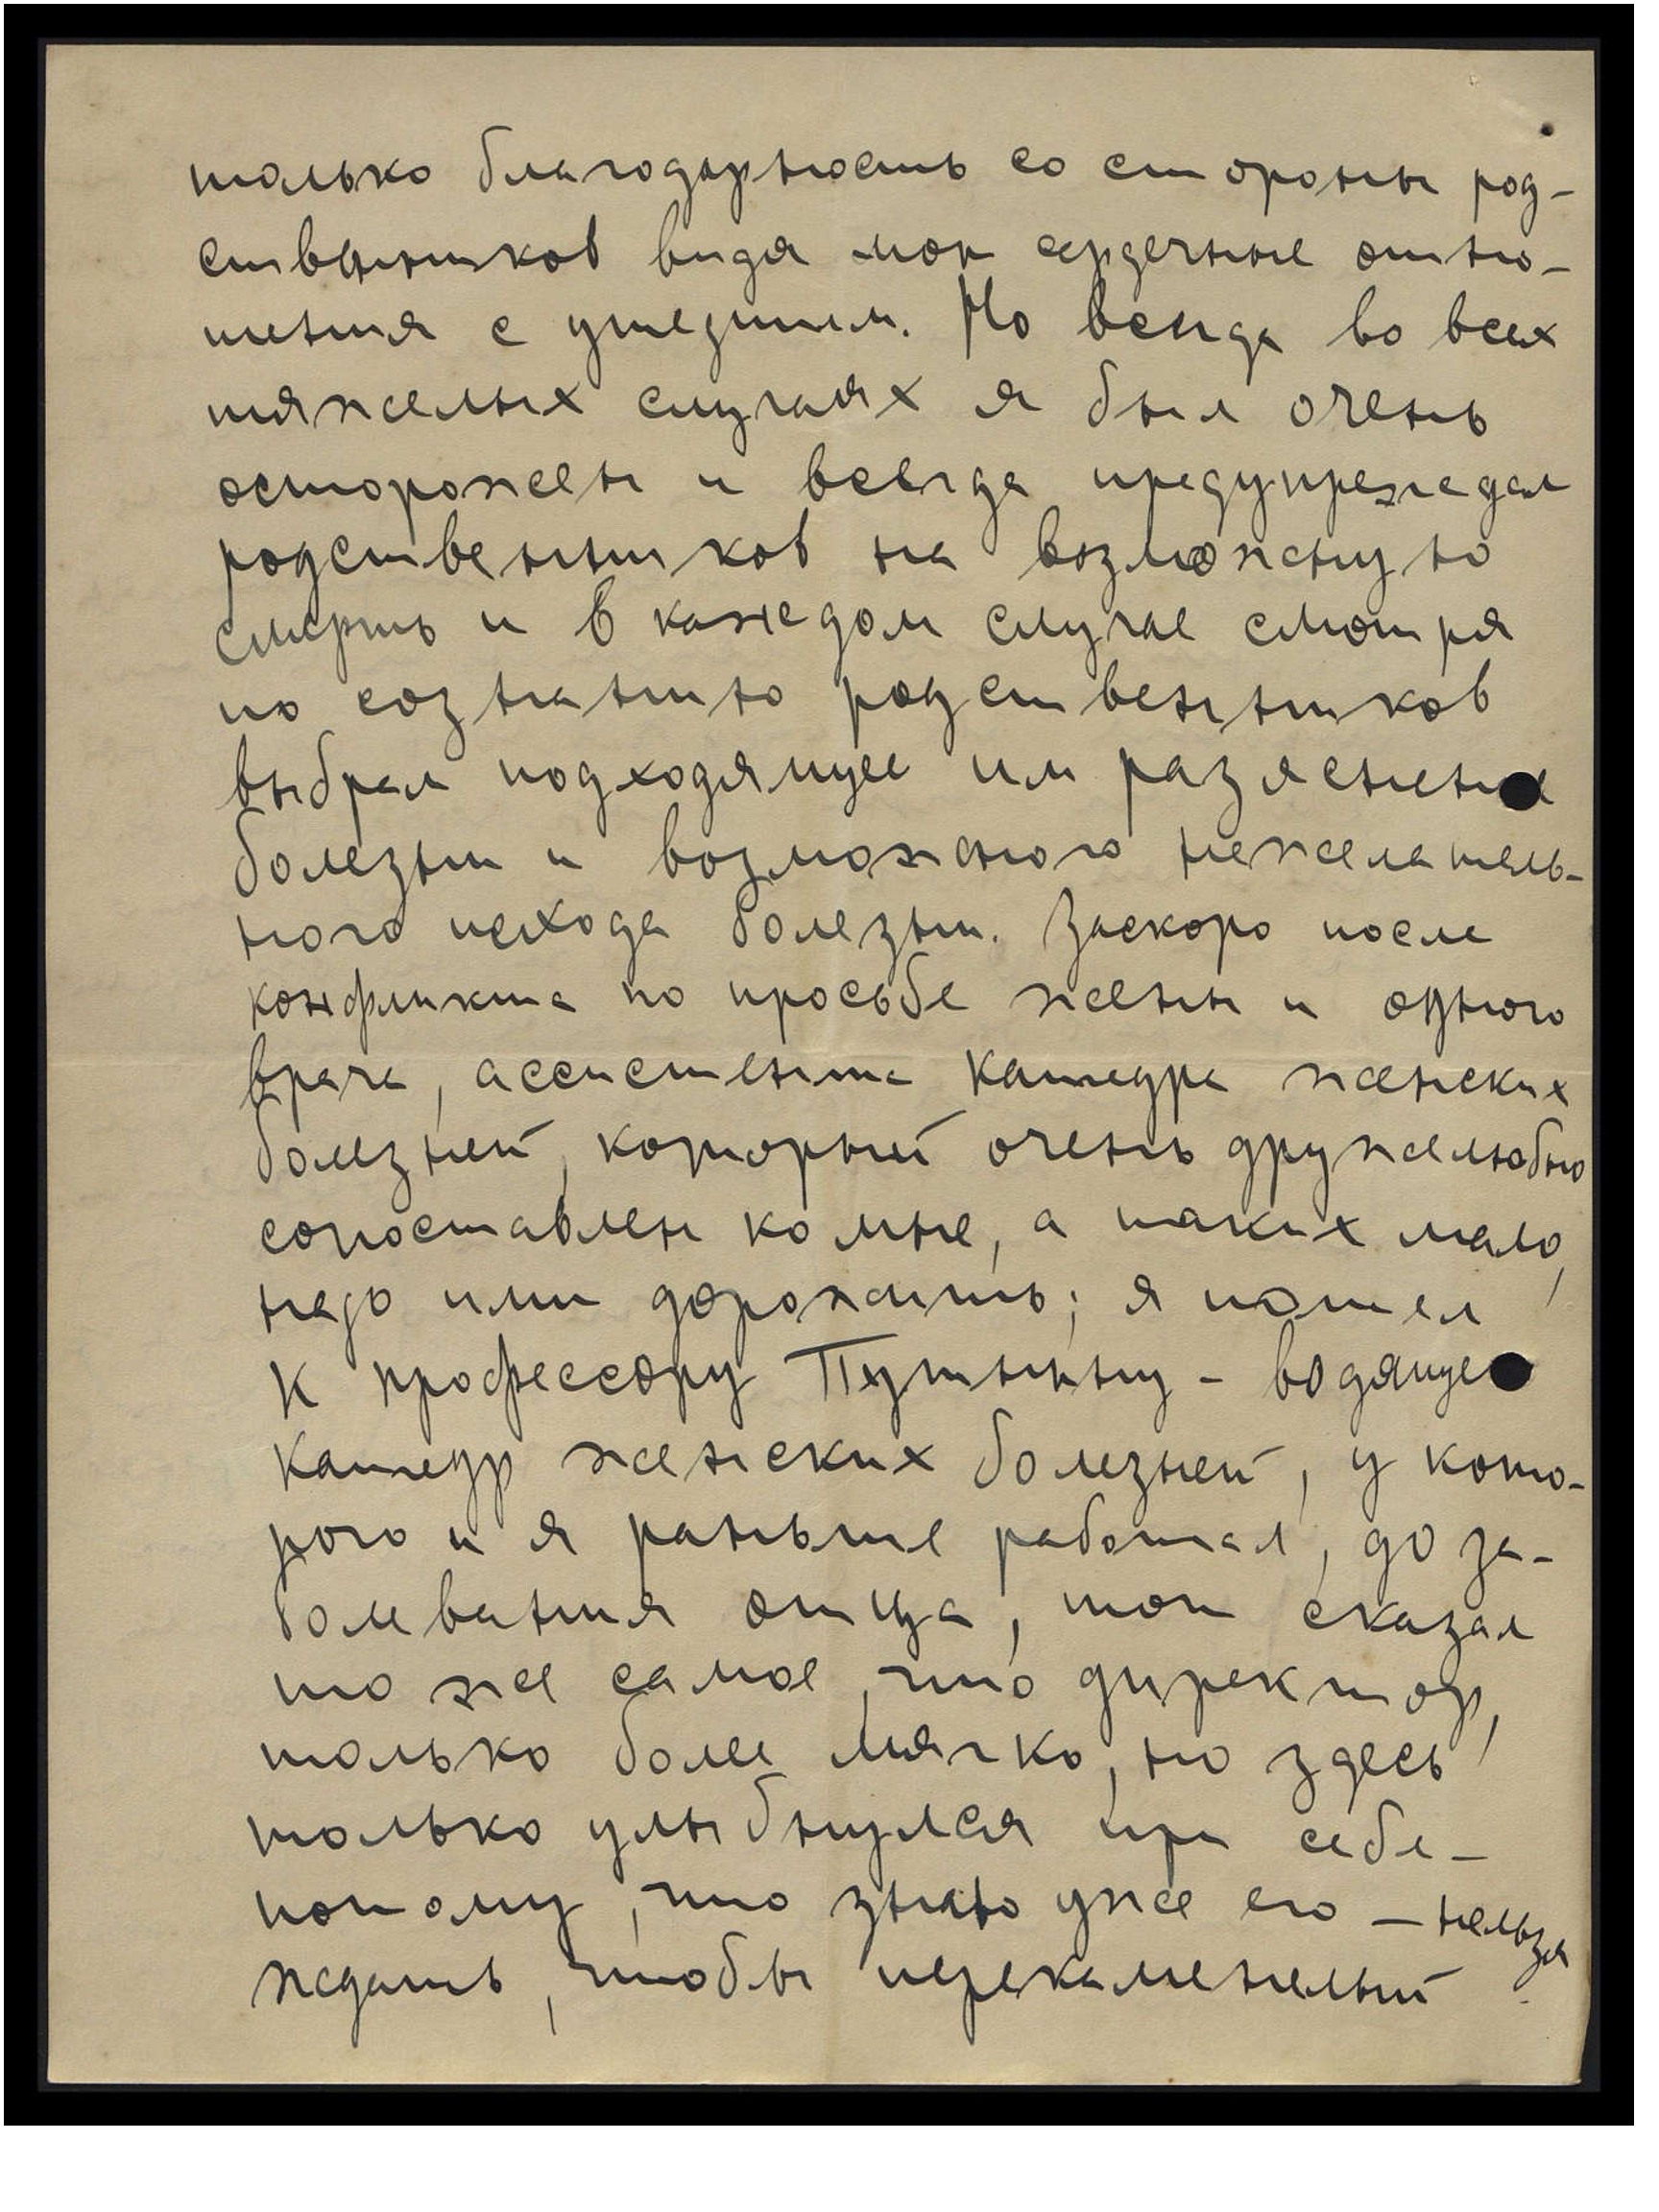 только благодарность со стороны род-
ственников видя мои сердечные отно-
шения с умершим. Но всегда во всех
тяжелых случаях я был очень
осторожен и всегда предупреждал
родственников на возможную
смерть и в каждом случае смотря
по сознанию родственников
выбрал подходящее им разяснение
болезни и возможного нежелатель-
ного исхода болезни. Заскоро после
конфликта по просьбе жены и одного
врача, ассистента катедра женских
болезней, который очень дружелюбно
сопоставлен ко мне, а таких мало,
надо ими дорожить; я пошел
к профессору - водящего
катедр женских болезней, у кото-
рого и я раньше работал, до за-
болевания отца, тот сказал
то же самое, что директор,
только более мягко, но здесь
только улыбнулся при себе -
потому, что знаю уже его - нельзя
ждать, чтобы перекаменелый